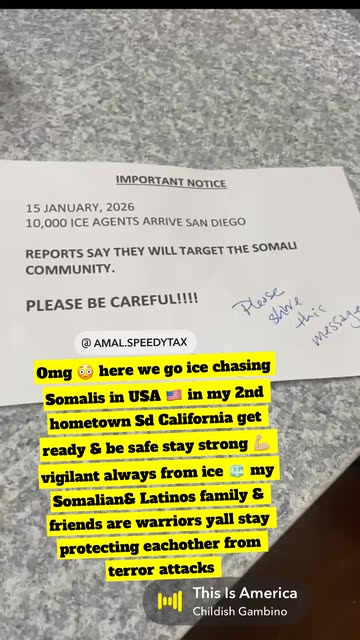 IMPORTANT NOTICE
15 JANUARY, 2026
10,000 ICE AGENTS ARRIVE SAN DIEGO
REPORTS SAY THEY WILL TARGET THE SOMALI
COMMUNITY.
PLEASE BE CAREFUL!!!!
Please
share
this
message
@ AMAL.SPEEDYTAX
Omg 😳 here we go ice chasing
Somalis in USA 🇺🇸 in my 2nd
hometown Sd California get
ready & be safe stay strong 💪🏼
vigilant always from ice 🧊 my
Somalian& Latinos family &
friends are warriors yall stay
protecting eachother from
terror attacks
This Is America
Childish Gambino